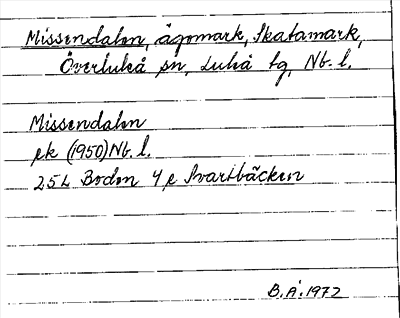 Missendalen, ägomark, Skatamark,
Överluleå sn, Luleå tg, Nb. l.
Missendalen
ek (1950) Nb. l.
25L Boden 4 e Svartbäcken
B.Å. 1972